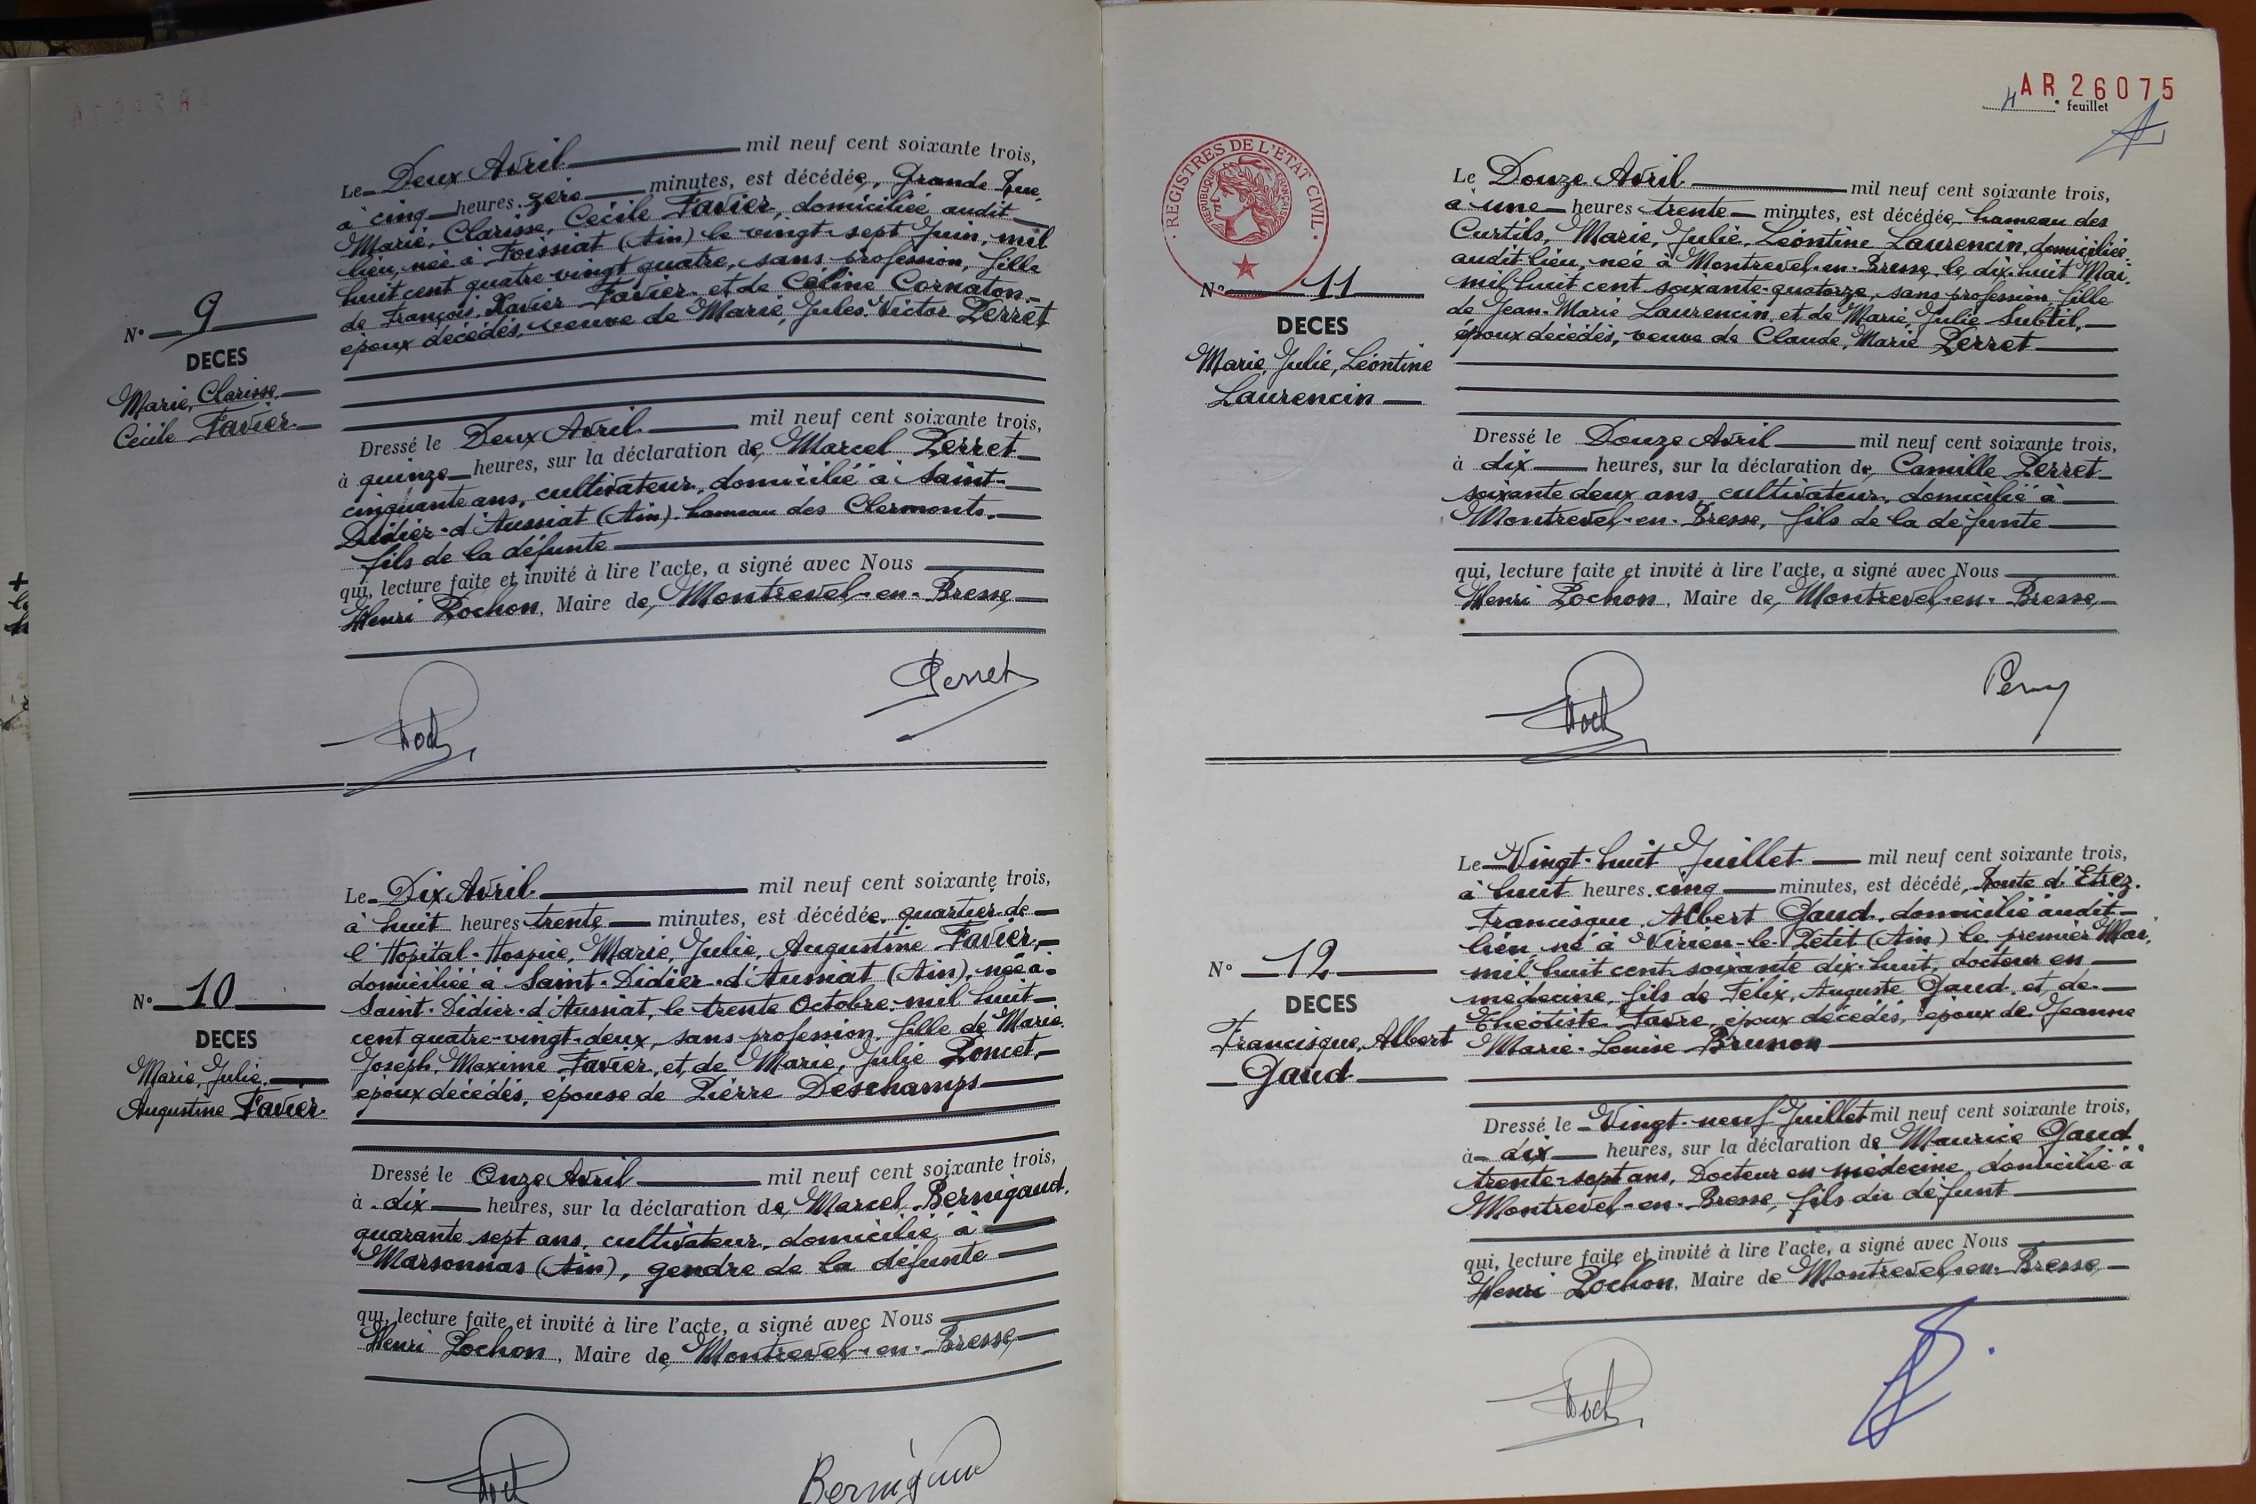 Le Deux Avril mil neuf cent soixante trois,
à cinq heures zéro minutes, est décédée, Grande Rue,
Marie, Clarisse, Cécile Favier, domiciliée audit
lieu, née à Foissiat (Ain) le vingt-sept Juin, mil
huit cent quatre-vingt quatre, sans profession, fille
de François, Xavier Favier et de Céline Cornaton
époux décédés, veuve de Marie, Jules, Victor Perret
N° 9
DECES
Marie, Clarisse
Cécile Favier
Dressé le Deux Avril mil neuf cent soixante trois,
à quinze heures, sur la déclaration de Marcel Perret
cinquante ans, cultivateur, domicilié à Saint-
Didier-d'Aussiat (Ain) hameau des Clermonts,
fils de la défunte
qui, lecture faite et invité à lire l'acte, a signé avec Nous
Henri Pochon, Maire de Montrevel-en-Bresse
Perret
Le Dix Avril mil neuf cent soixante trois,
à huit heures trente minutes, est décédée, quartier de
l'Hôpital-Hospice, Marie, Julie, Augustine Favier,
domiciliée à Saint-Didier-d'Aussiat (Ain), née à
Saint-Didier-d'Aussiat, le trente Octobre mil huit
cent quatre-vingt-deux, sans profession, fille de Marie
Joseph, Maxime Favier, et de Marie, Julie Poncet,
époux décédés, épouse de Pierre Deschamps
N° 10
DECES
Marie, Julie,
Augustine Favier
Dressé le Onze Avril mil neuf cent soixante trois,
à dix heures, sur la déclaration de Marcel Bernigaud,
quarante sept ans, cultivateur, domicilié à
Marsonnas (Ain), gendre de la défunte
qui, lecture faite et invité à lire l'acte, a signé avec Nous
Henri Pochon, Maire de Montrevel-en-Bresse
Bernigaud
AR 26075
4e feuillet
REGISTRES DE L'ETAT CIVIL
REPUBLIQUE FRANCAISE
Le Douze Avril mil neuf cent soixante trois,
à une heures trente minutes, est décédée, hameau des
Curtils, Marie, Julie, Léontine Laurencin, domiciliée
audit lieu, née à Montrevel-en-Bresse, le dix-huit Mai,
mil huit cent soixante-quatorze, sans profession, fille
de Jean-Marie Laurencin, et de Marie, Julie Subtil,
époux décédés, veuve de Claude, Marie Perret
N° 11
DECES
Marie, Julie, Léontine
Laurencin
Dressé le Douze Avril mil neuf cent soixante trois,
à dix heures, sur la déclaration de Camille Perret
soixante deux ans, cultivateur, domicilié à
Montrevel-en-Bresse, fils de la défunte
qui, lecture faite et invité à lire l'acte, a signé avec Nous
Henri Pochon, Maire de Montrevel-en-Bresse
Le Vingt-huit Juillet mil neuf cent soixante trois,
à huit heures cinq minutes, est décédé, Route d'Etrez,
Francisque, Albert Gaud, domicilié audit
lieu, né à Virieu-le-Petit (Ain) le premier Mai,
mil huit cent soixante dix-huit, docteur en
médecine, fils de Félix, Auguste Gaud, et de
Théotiste Favre, époux décédés, époux de Jeanne
Marie-Louise Brunon
N° 12
DECES
Francisque, Albert
Gaud
Dressé le Vingt-neuf Juillet mil neuf cent soixante trois,
à dix heures, sur la déclaration de Maurice Gaud
trente-sept ans, Docteur en médecine, domicilié à
Montrevel-en-Bresse, fils du défunt
qui, lecture faite et invité à lire l'acte, a signé avec Nous
Henri Pochon, Maire de Montrevel-en-Bresse